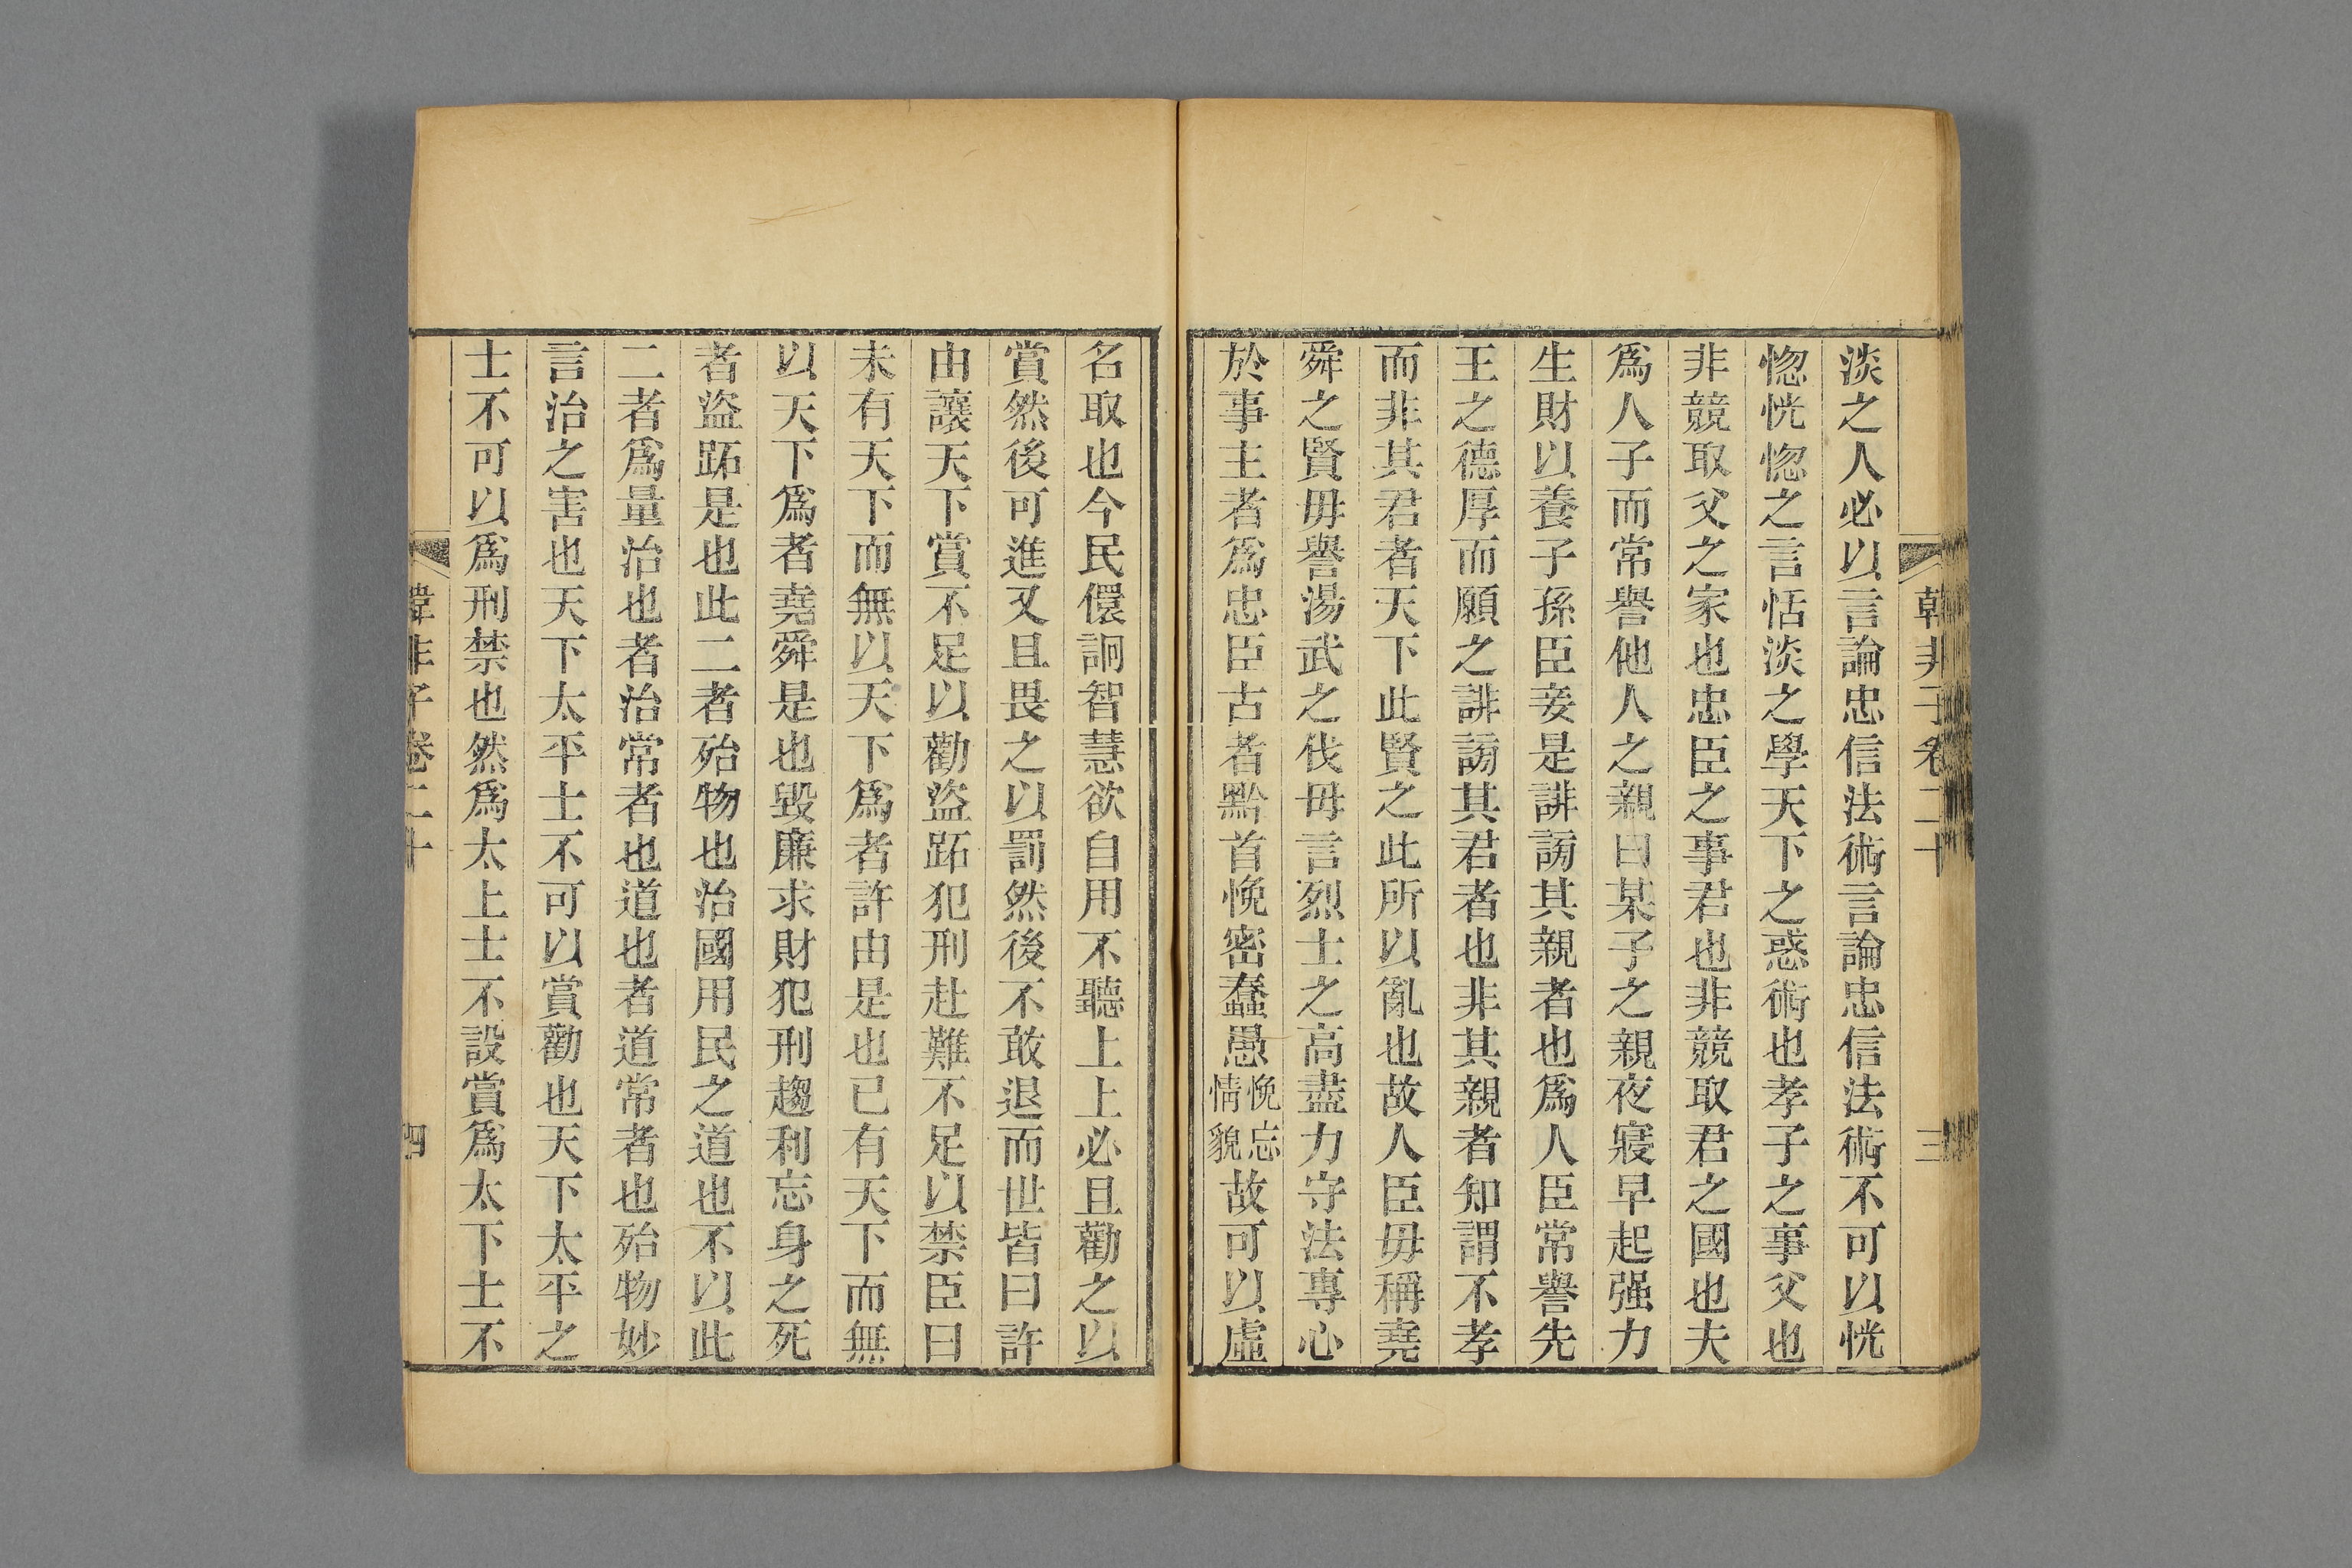 韓非子卷二十 三
淡之人必以言論忠信法術言論忠信法術不可以恍
惚恍惚之言恬淡之學天下之惑術也孝子之事父也
非競取父之家也忠臣之事君也非競取君之國也夫
爲人子而常譽他人之親曰某子之親夜寢早起强力
生財以養子孫臣妾是誹謗其親者也爲人臣常譽先
王之德厚而願之誹謗其君者也非其親者知謂不孝
而非其君者天下此賢之此所以亂也故人臣毋稱堯
舜之賢毋譽湯武之伐毋言烈士之高盡力守法專心
於事主者爲忠臣古者黔首悗密蠢愚悗忘情貌故可以虛
名取也今民儇詗智慧欲自用不聽上上必且勸之以
賞然後可進又且畏之以罰然後不敢退而世皆曰許
由讓天下賞不足以勸盜跖犯刑赴難不足以禁臣曰
未有天下而無以天下爲者許由是也已有天下而無
以天下爲者堯舜是也毀廉求財犯刑趨利忘身之死
者盜跖是也此二者殆物也治國用民之道也不以此
二者爲量治也者治常者也道也者道常者也殆物妙
言治之害也天下太平士不可以賞勸也天下太平之
士不可以爲刑禁也然爲太上士不設賞爲太下士不
韓非子卷二十 四